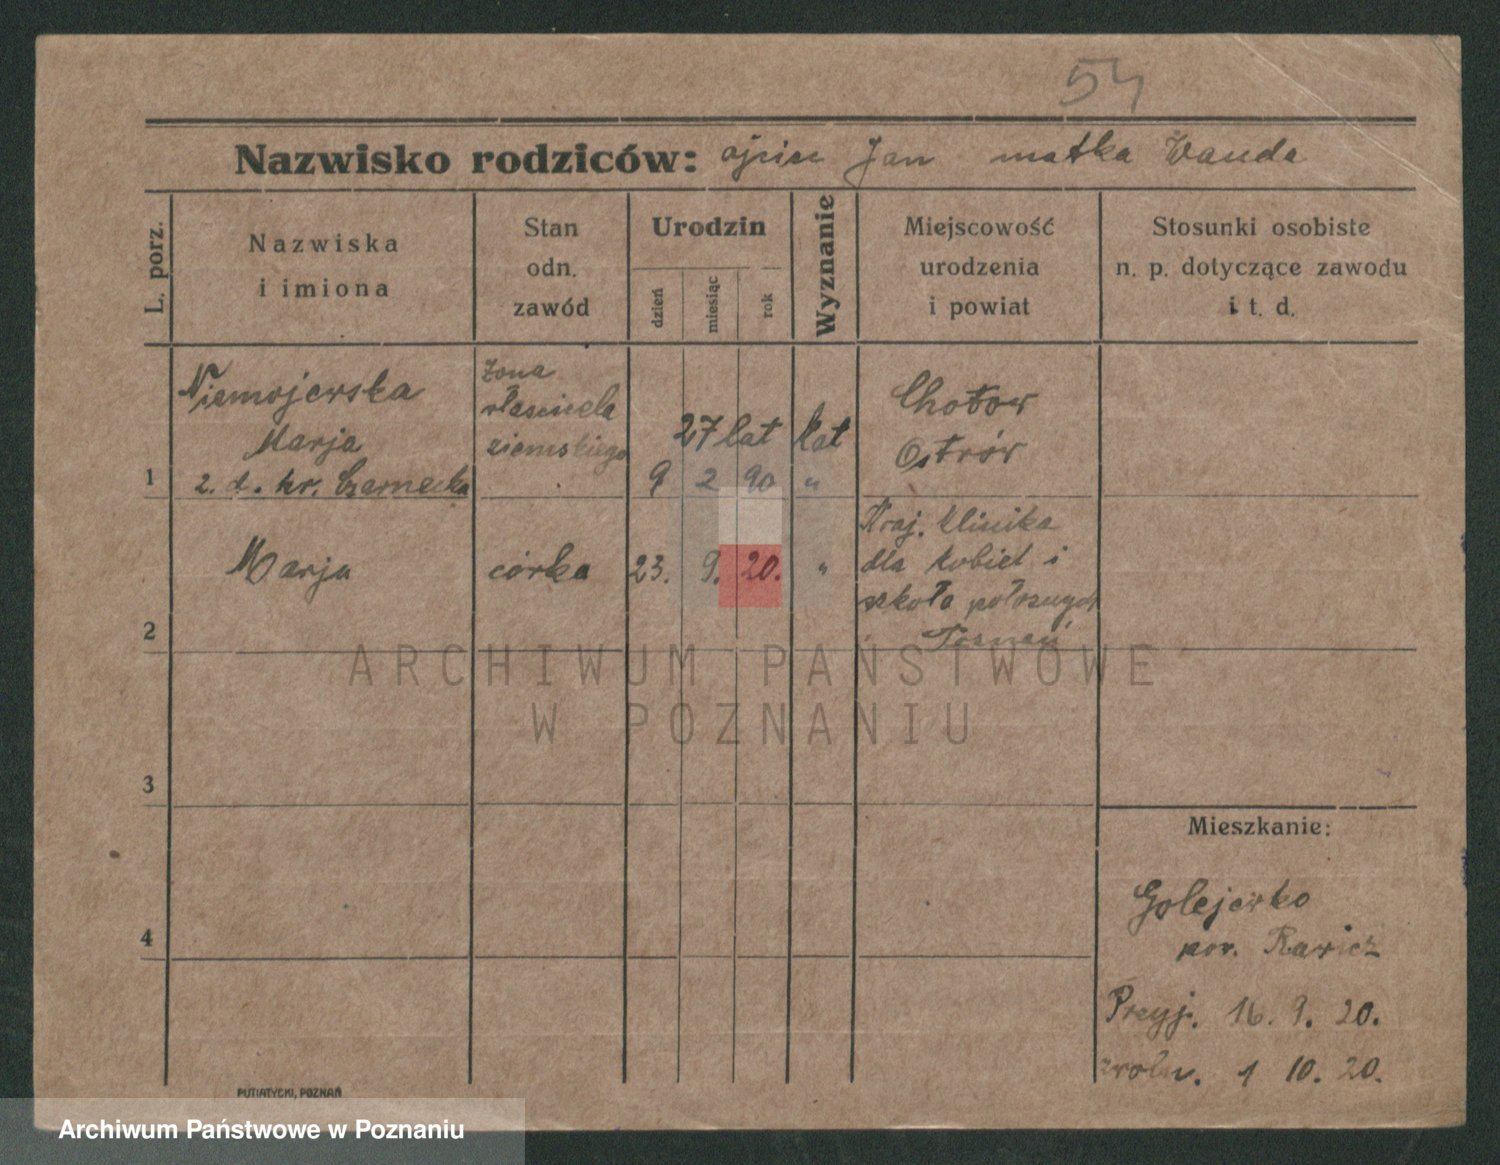 54
Nazwisko rodziców: ojciec Jan matka Wanda
L. porz.
Nazwiska
i imiona
Stan
odn.
zawód
Urodzin
dzień
miesiąc
rok
Wyznanie
Miejscowość
urodzenia
i powiat
Stosunki osobiste
n. p. dotyczące zawodu
i t. d.
1
Niemojewska
Marja
2. d. hr. Czarnecka
żona
właściciela
ziemskiego
27 lat
9 2 90
kat
"
Chotow
Ostrów
2
Marja
córka
23. 9. 20.
"
Kraj. Klinika
dla kobiet i
szkoła położnych
Poznań
3
4
Mieszkanie:
Golejewko
pow. Rawicz
Przyj. 16. 9. 20.
zwoln. 1 10. 20.
PUTIATYCKI, POZNAŃ
ARCHIWUM PAŃSTWOWE
W POZNANIU
Archiwum Państwowe w Poznaniu